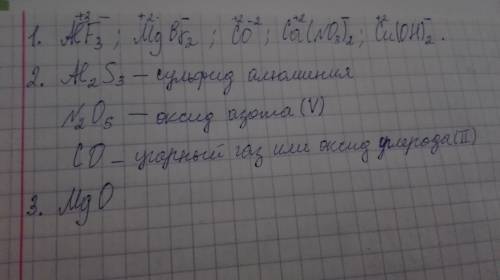 1. AlF₃⁺³ ⁻; Mg⁺²Br₂⁻; C⁺²O⁻²; Ca⁺²(NO₃)₂⁻; Cu⁺²(OH)₂⁻.
2. Al₂S₃ – сульфид алюминия
N₂O₅ – оксид азота (V)
CO – угарный газ или оксид углерода (II)
3. MgO